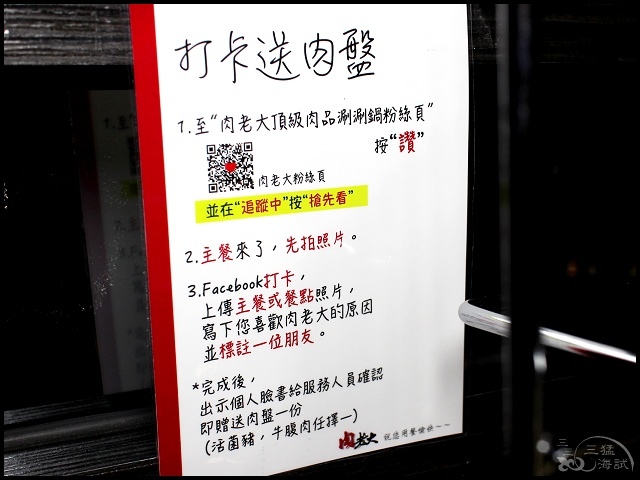 打卡送肉盤
1.至“肉老大頂級肉品涮涮鍋粉絲頁”
按“讚”
肉老大粉絲頁
並在“追蹤中”按“搶先看”
2.主餐來了，先拍照片。
3.Facebook打卡，
上傳主餐或餐點照片，
寫下您喜歡肉老大的原因
並標註一位朋友。
*完成後，
出示個人臉書給服務人員確認
即贈送肉盤一份
(活菌豬，牛腹肉任擇一)
肉老大 祝您用餐愉快~~
三猛
海試